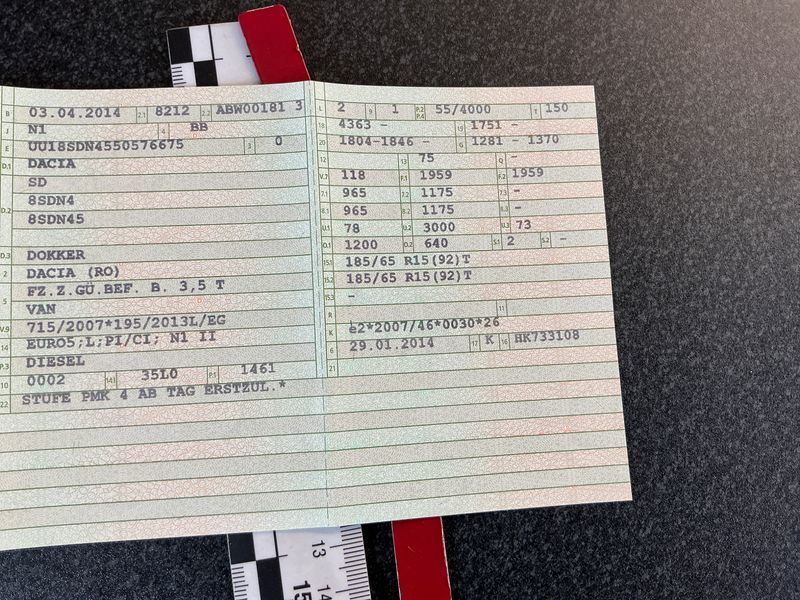 B 03.04.2014 2.1 8212 2.2 ABW00181 3
J N1 4 BB
E UU18SDN4550576675 3 0
D.1 DACIA
SD
D.2 8SDN4
8SDN45
D.3 DOKKER
2 DACIA (RO)
FZ.Z.GÜ.BEF. B. 3,5 T
5 VAN
V.9 715/2007*195/2013L/EG
14 EURO5;L;PI/CI; N1 II
P.3 DIESEL
10 0002 14.1 35L0 P.1 1461
22 STUFE PMK 4 AB TAG ERSTZUL.*
L 2 9 1 P.2 P.4 55/4000 T 150
18 4363 - 19 1751 -
20 1804-1846 - G 1281 - 1370
12 13 75 Q -
V.7 118 F.1 1959 F.2 1959
7.1 965 7.2 1175 7.3 -
8.1 965 8.2 1175 8.3 -
U.1 78 U.2 3000 U.3 73
O.1 1200 O.2 640 S.1 2 S.2 -
15.1 185/65 R15(92)T
15.2 185/65 R15(92)T
15.3 -
R 11
K e2*2007/46*0030*26
6 29.01.2014 17 K 16 HK733108
21
13
14
15